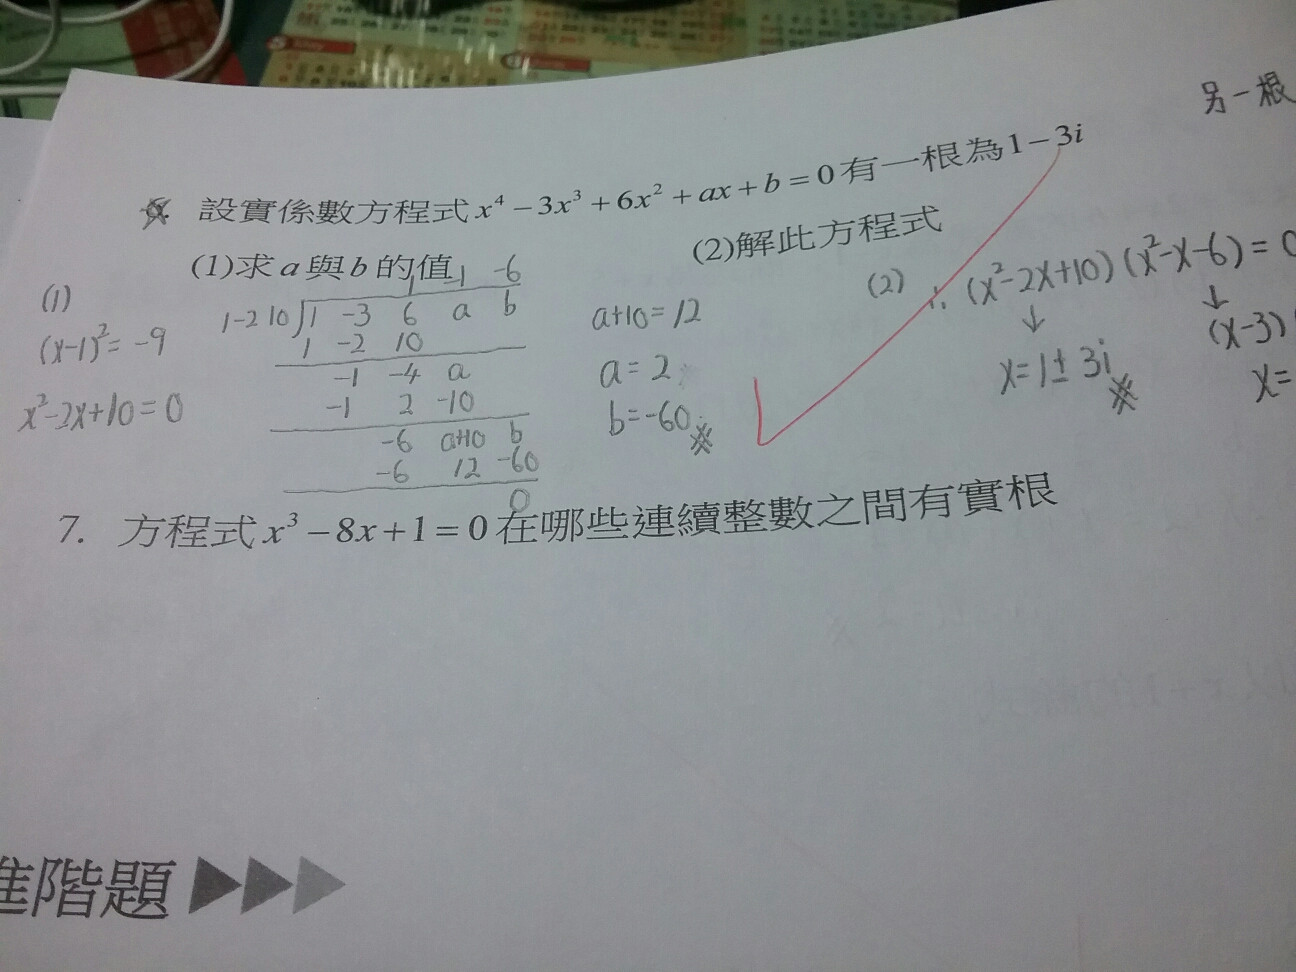 另一根
6. 設實係數方程式 x⁴ − 3x³ + 6x² + ax + b = 0 有一根為 1 − 3i
(1)求 a 與 b 的值 (2)解此方程式
(1)
(x-1)² = -9
x²-2x+10=0
1 -1 -6
1-2 10 ) 1 -3 6 a b
1 -2 10
-1 -4 a
-1 2 -10
-6 a+10 b
-6 12 -60
0
a+10=12
a=2
b=-60
(2) ∴ (x²-2x+10)(x²-x-6)=0
↓ ↓
x=1±3i
(x-3)
x=
7. 方程式 x³ − 8x + 1 = 0 在哪些連續整數之間有實根
進階題